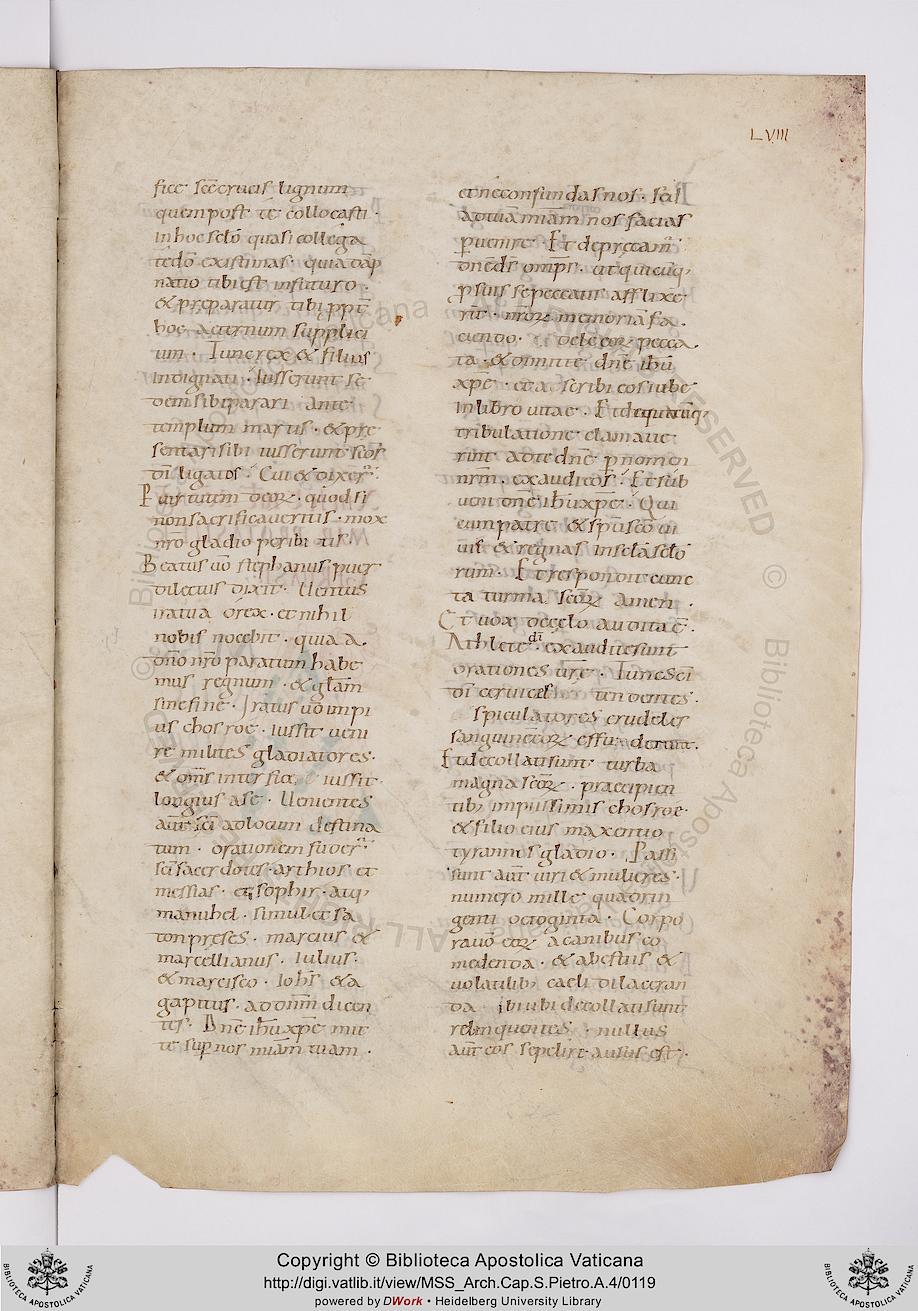 LVIII
fice· sc̄e crucis lignum
quem post te collocasti·
in hoc sclō quasi collega
te dō existimas· quia dāp
natio tibi est in futuro·
& preparatur tibi ppt̄
hoc aeternum supplici
um· Tunc rex & filius
indignati· iusserunt se
dem sibi parari ante
templum martis· & pre
sentari sibi iusserunt scōs
dī ligatos· Cui & dixer̄·
P uirtutem deoꝝ· quod si
non sacrificaueritis· mox
nr̄o gladio peribitis·
Beatus uō stephanus puer
dilectus dixit· Uentus
ira tua o rex· et nihil
nobis nocebit· quia a
dn̄o nr̄o paratum habe
mus regnum· & glām
sine fine· Iratus uō impi
us chosroe· iussit ueni
re milites gladiatores·
& om̄s interfici iussit·
longius a se· Uenientes
aut̄ scī ad locum destina
tum· orationem fuder̄
scī sacerdotis· arthios et
messias· et sophir· atq;
manuhel· simul et sa
ton preses· marcius &
marcellianus· Iulius·
& marcisco· Ioh̄s & a
gapitus· ad dn̄m dicen
tes· Dn̄e ih̄u xp̄e mit
te sup nos miām tuam·
et ne confundas nos· sed
ad tuā miām nos facias
puenire· Et depręcam̄
dn̄e ds̄ omp̄s· ut quicūq;
p suis se peccatis afflixe
rit· nr̄oꝝ memoriā fa
ciendo· dele eoꝝ pecca
ta· & dimitte dn̄e ih̄u
xp̄e· et ascribi eos iube
in libro uitae· Et de quacūq;
tribulatione clamaue
rint ad te dn̄e p nomen
nr̄m· exaudi eos· Et sub
ueni dn̄e ih̄u xp̄e· Qui
cum patre & sp̄u sc̄o ui
uis & regnas in sclā sclō
rum· Et respondit cunc
ta turma sc̄oꝝ amen·
Et uox de cęlo audita ē·
Athletę dī· exaudite sunt
orationes ur̄e· Tunc scī
dī ceruices tendentes·
spiculatores crudeles
sanguinē eoꝝ effuderunt·
Et decollati sunt turba
magna sc̄oꝝ· praecipien
tib; impiissimis chosroe·
& filio eius maxentio
tyrannis gladio· Passi
sunt aut̄ uiri & mulieres·
numero mille quadrin
genti octoginta· Corpo
ra uō eoꝝ a canibus co
medenda· & a bestiis &
uolatilib; caeli dilaceran
da· ibi ubi decollati sunt
relinquentes· nullus
aut̄ eos sepelire ausus est·
Copyright © Biblioteca Apostolica Vaticana
http://digi.vatlib.it/view/MSS_Arch.Cap.S.Pietro.A.4/0119
powered by DWork • Heidelberg University Library